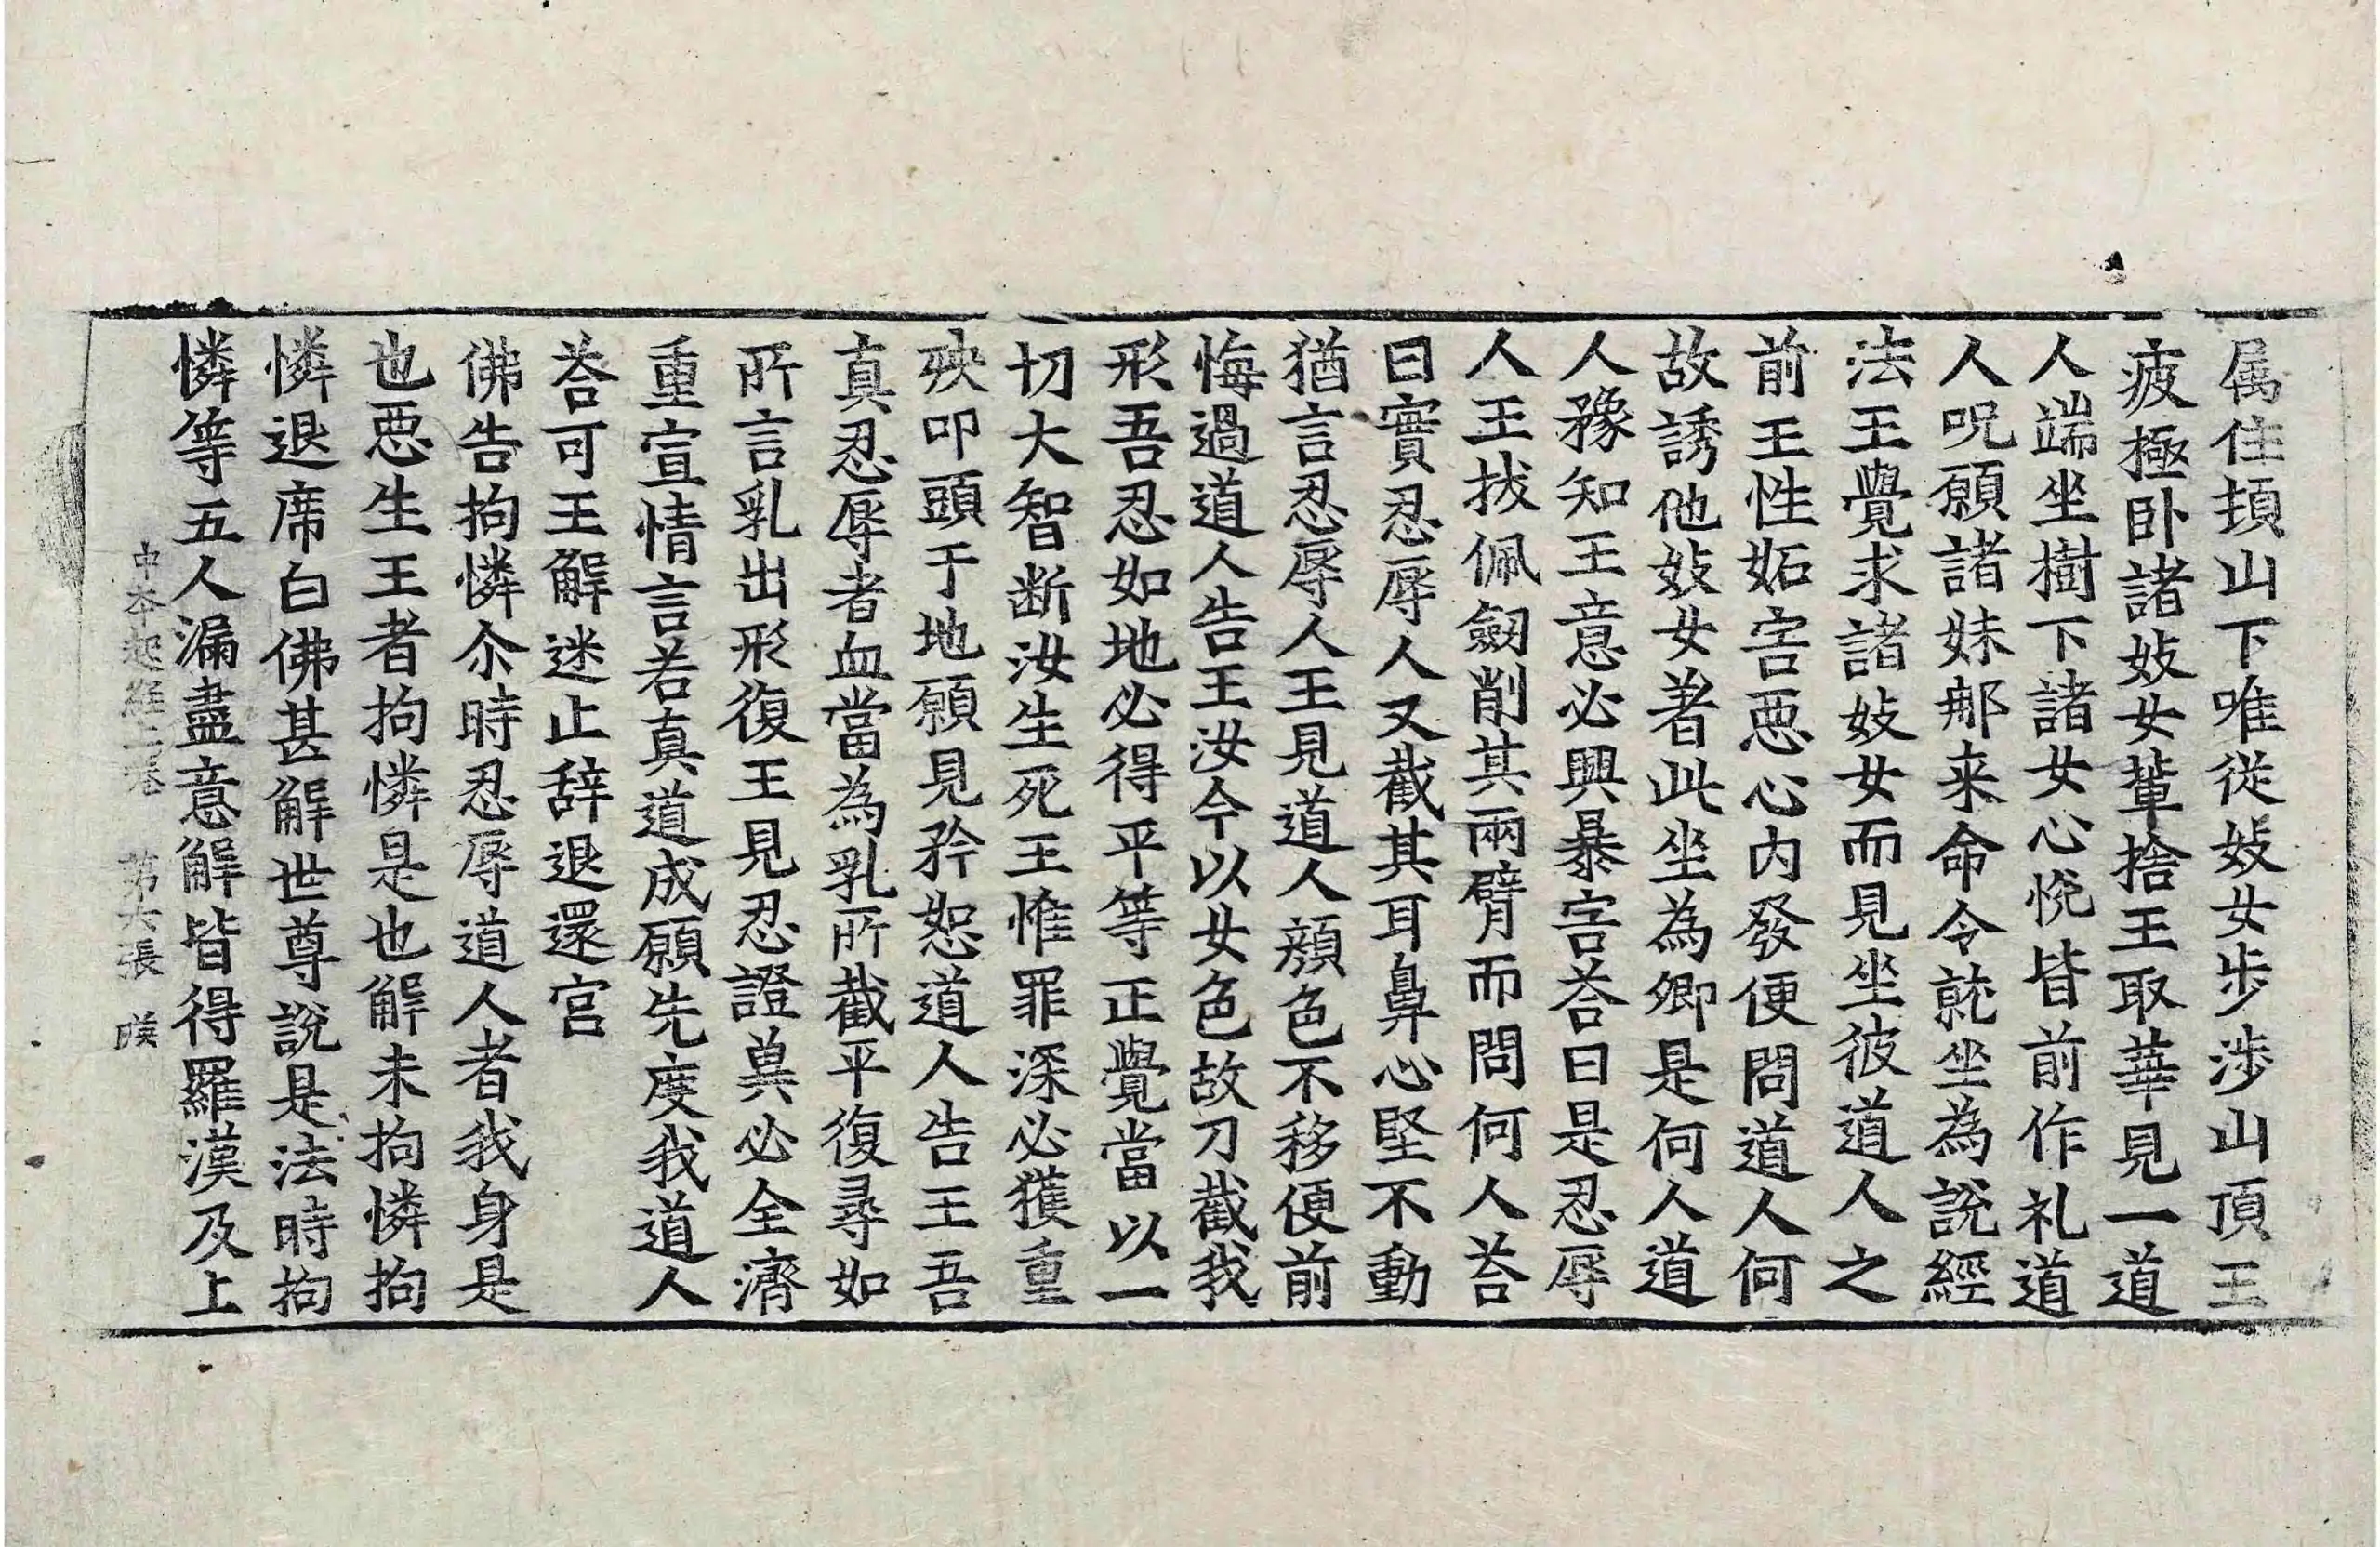 属住頂山下唯從妓女步涉山頂王
疲極卧諸妓女輩捨王取華見一道
人端坐樹下諸女心悅皆前作礼道
人呪願諸妹𨙻来命令就坐為說經
法王覺求諸妓女而見坐彼道人之
前王性妬害惡心內發便問道人何
故誘他妓女著此坐為卿是何人道
人豫知王意必興暴害荅曰是忍辱
人王拔佩劒削其兩臂而問何人荅
曰實忍辱人又截其耳鼻心堅不動
猶言忍辱人王見道人顏色不移便前
悔過道人告王汝今以女色故刀截我
形吾忍如地必得平等正覺當以一
切大智断汝生死王惟罪深必獲重
殃叩頭于地願見矜恕道人告王吾
真忍辱者血當為乳所截平復尋如
所言乳出形復王見忍證冀必全濟
重宣情言若真道成願先度我道人
荅可王解迷止辞退還宫
佛告拘憐尒時忍辱道人者我身是
也惡生王者拘憐是也解未拘憐拘
憐退席白佛甚解世尊說是法時拘
憐等五人漏盡意解皆得羅漢及上
中本起經上卷　第六張